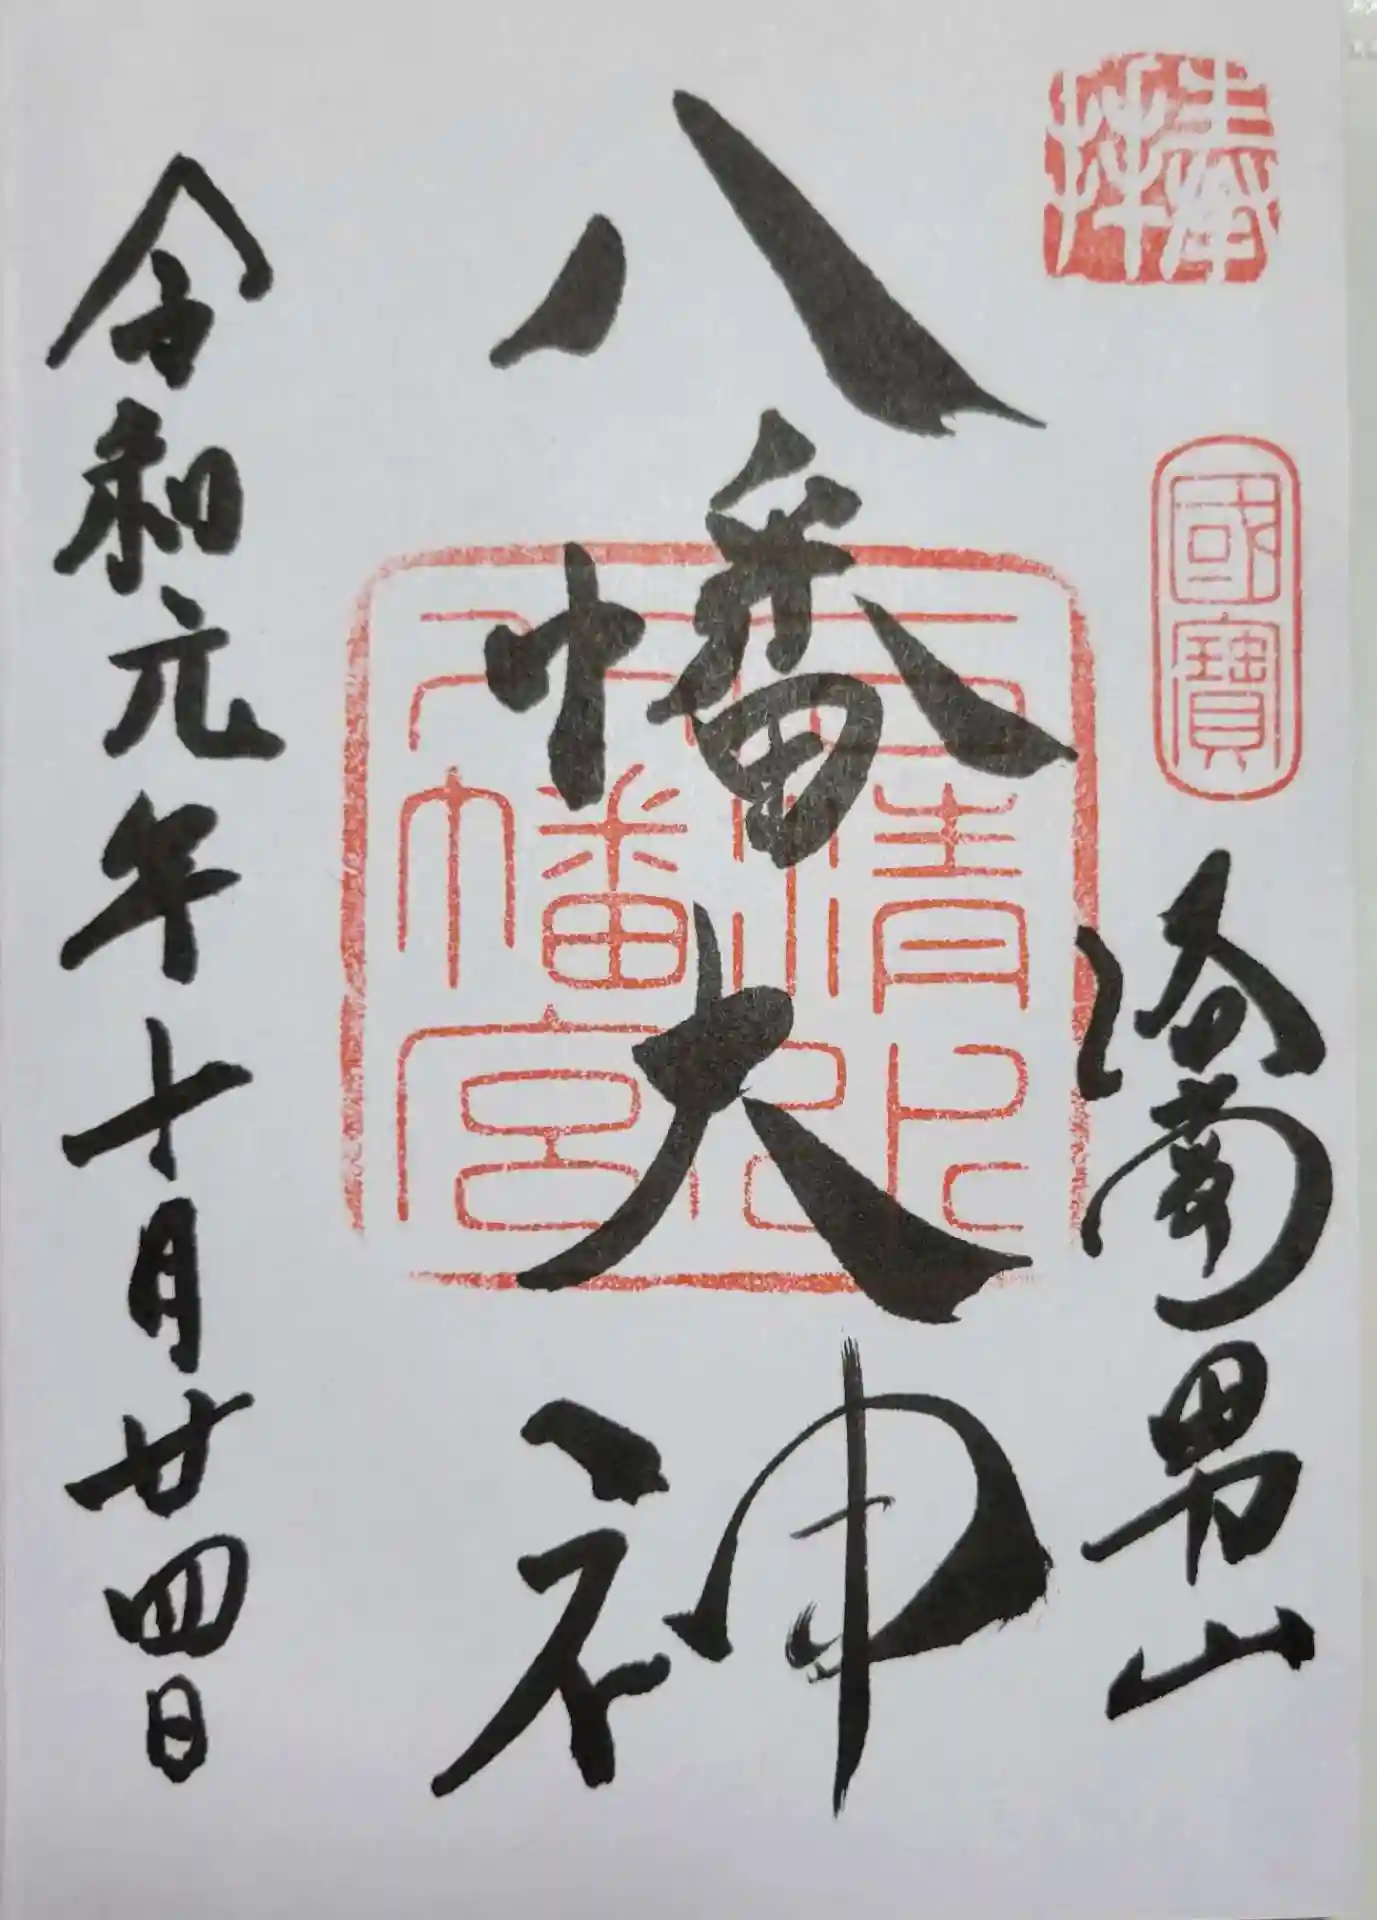 奉拝
國寶
洛南男山
八幡大神
石清水
八幡宮印
令和元年十月廿四日